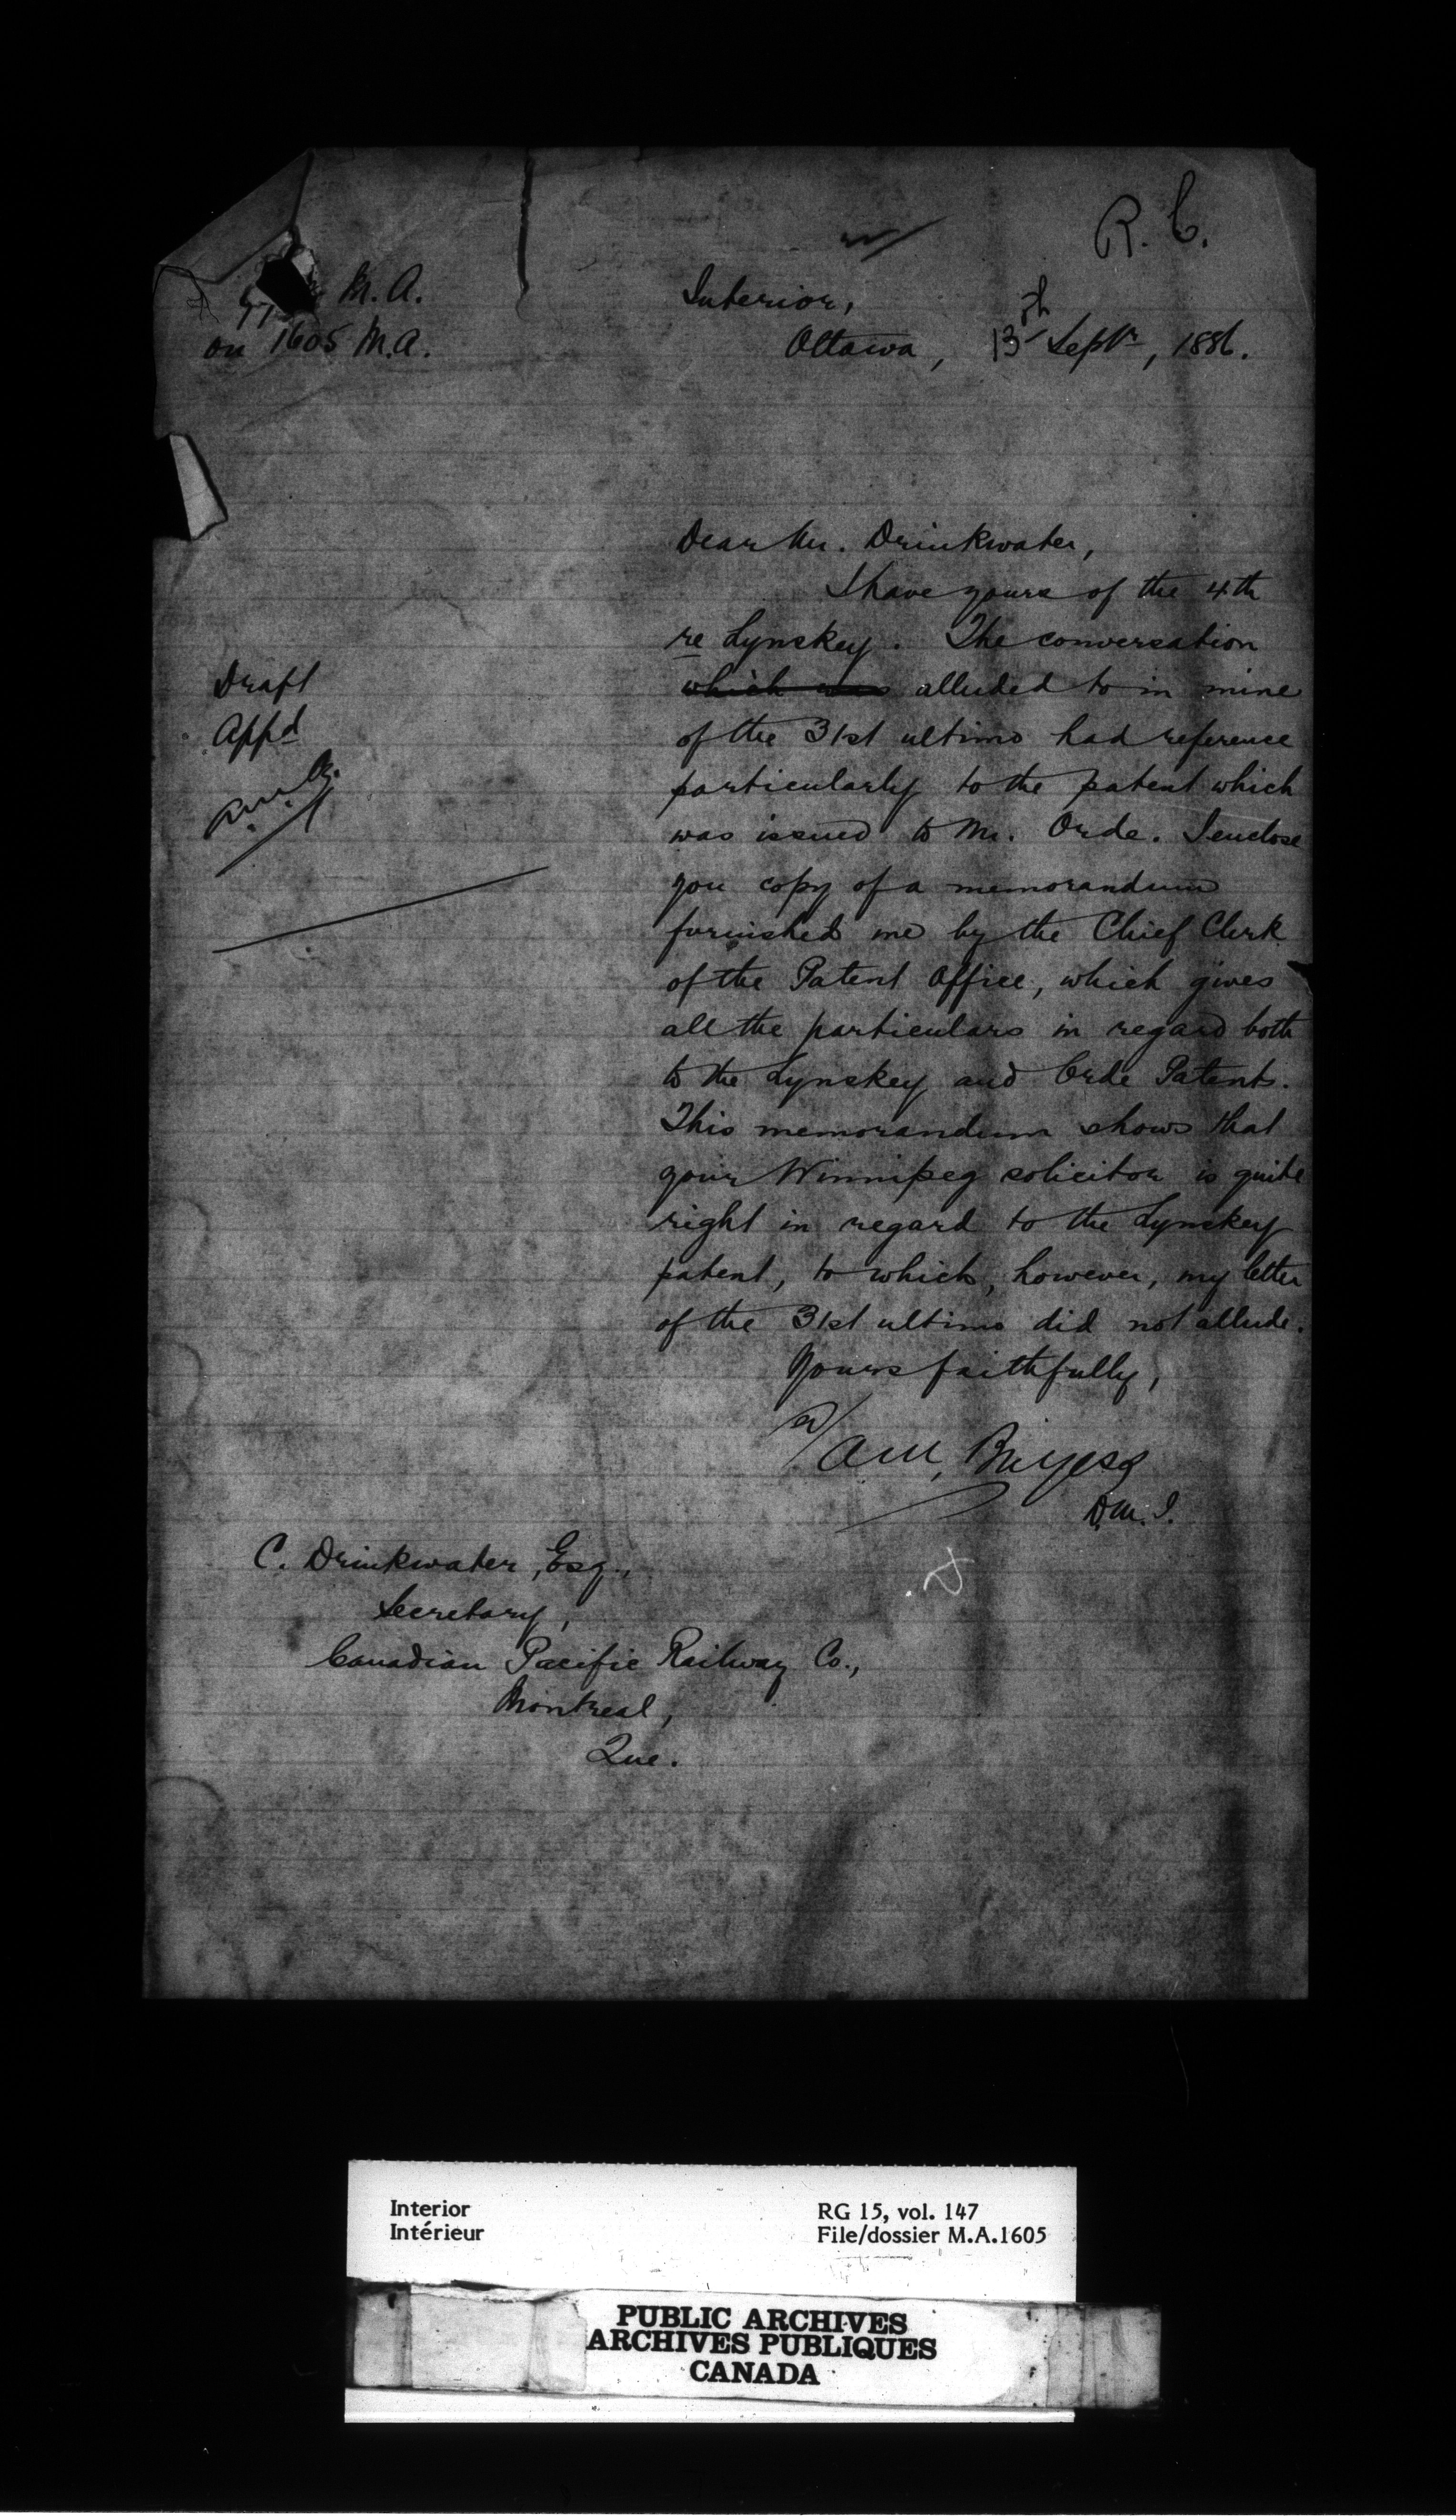 R. C.
M. A.
on 1605 M.A.
Interior,
Ottawa, 13th Septr, 1886.
Dear Mr. Drinkwater,
I have yours of the 4th
re Lynskey. The conversation
which was alluded to in mine
of the 31st ultimo had reference
particularly to the patent which
was issued to Mr. Orde. I enclose
you copy of a memorandum
furnished me by the Chief Clerk
of the Patent Office, which gives
all the particulars in regard both
to the Lynskey and Orde Patents.
This memorandum shows that
your Winnipeg solicitor is quite
right in regard to the Lynskey
patent, to which, however, my letter
of the 31st ultimo did not allude.
Yours faithfully,
A M. Burgess
D.M.I.
Draft
Appd
A.M.B.
C. Drinkwater, Esq.,
Secretary,
Canadian Pacific Railway Co.,
Montreal,
Que.
Interior
Intérieur
RG 15, vol. 147
File/dossier M.A.1605
PUBLIC ARCHIVES
ARCHIVES PUBLIQUES
CANADA